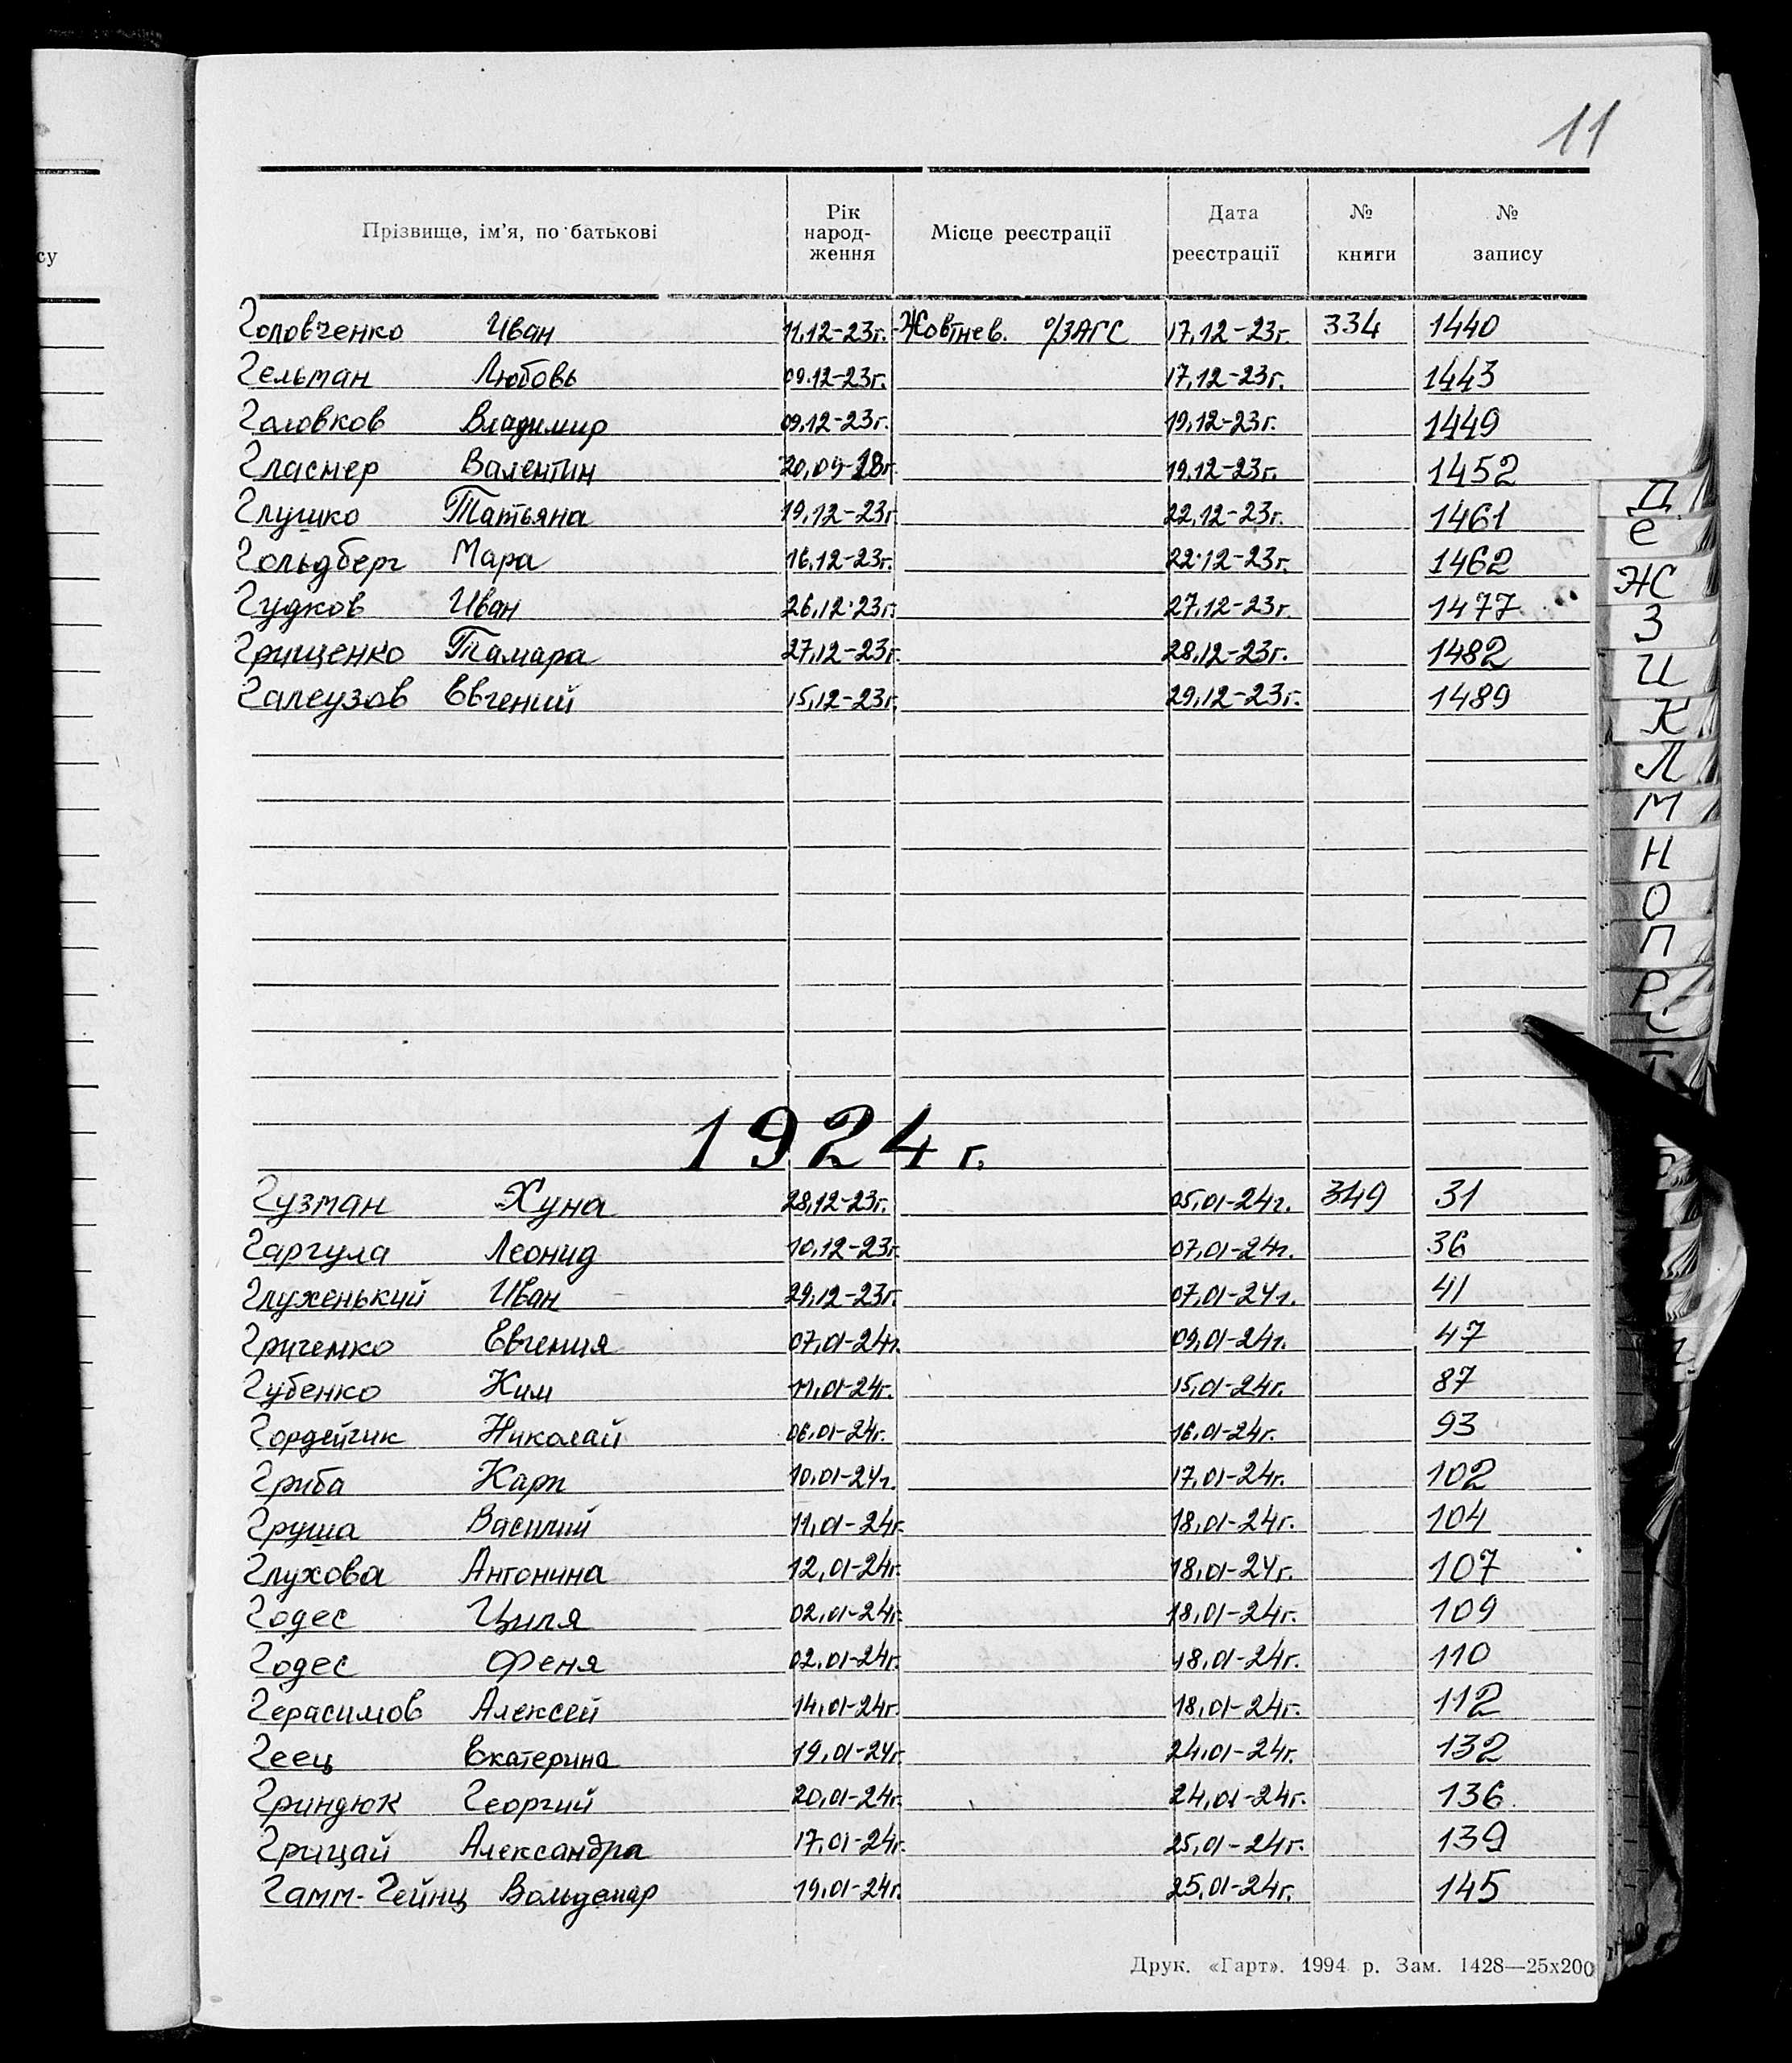 11
Прізвище, ім'я, по батькові Рік народ-ження Місце реєстрації Дата реєстрації № книги № запису
су
Головченко Иван 11.12-23г. Жовтнев. о/ЗАГС 17.12-23г. 334 1440
Гельман Любовь 09.12-23г. 17.12-23г. 1443
Головков Владимир 09.12-23г. 19.12-23г. 1449
Гласнер Валентин 20.09-18г. 19.12-23г. 1452
Глушко Татьяна 19.12-23г. 22.12-23г. 1461
Гольдберг Мара 16.12-23г. 22.12-23г. 1462
Гудков Иван 26.12.23г. 27.12-23г. 1477
Грищенко Тамара 27.12-23г. 28.12-23г. 1482
Галеузов Евгений 15.12-23г. 29.12-23г. 1489
1924 г.
Гузман Хуна 28.12-23г. 05.01-24г. 349 31
Гаргула Леонид 10.12-23г. 07.01-24г. 36
Глухенький Иван 29.12-23г. 07.01-24г. 41
Гриченко Евгения 07.01-24г. 09.01-24г. 47
Губенко Ким 11.01-24г. 15.01-24г. 87
Гордейчик Николай 06.01-24г. 16.01-24г. 93
Гриба Карп 10.01-24г. 17.01-24г. 102
Груша Василий 11.01-24г. 18.01-24г. 104
Глухова Антонина 12.01-24г. 18.01-24г. 107
Годес Циля 02.01-24г. 18.01-24г. 109
Годес Феня 02.01-24г. 18.01-24г. 110
Герасимов Алексей 14.01-24г. 18.01-24г. 112
Геец Екатерина 19.01-24г. 24.01-24г. 132
Гриндюк Георгий 20.01-24г. 24.01-24г. 136
Грицай Александра 17.01-24г. 25.01-24г. 139
Гамм-Гейнц Вольдемар 19.01-24г. 25.01-24г. 145
Друк. «Гарт». 1994 р. Зам. 1428—25х200
Д
Е
Ж
З
И
К
Л
М
Н
О
П
Р
С
Т